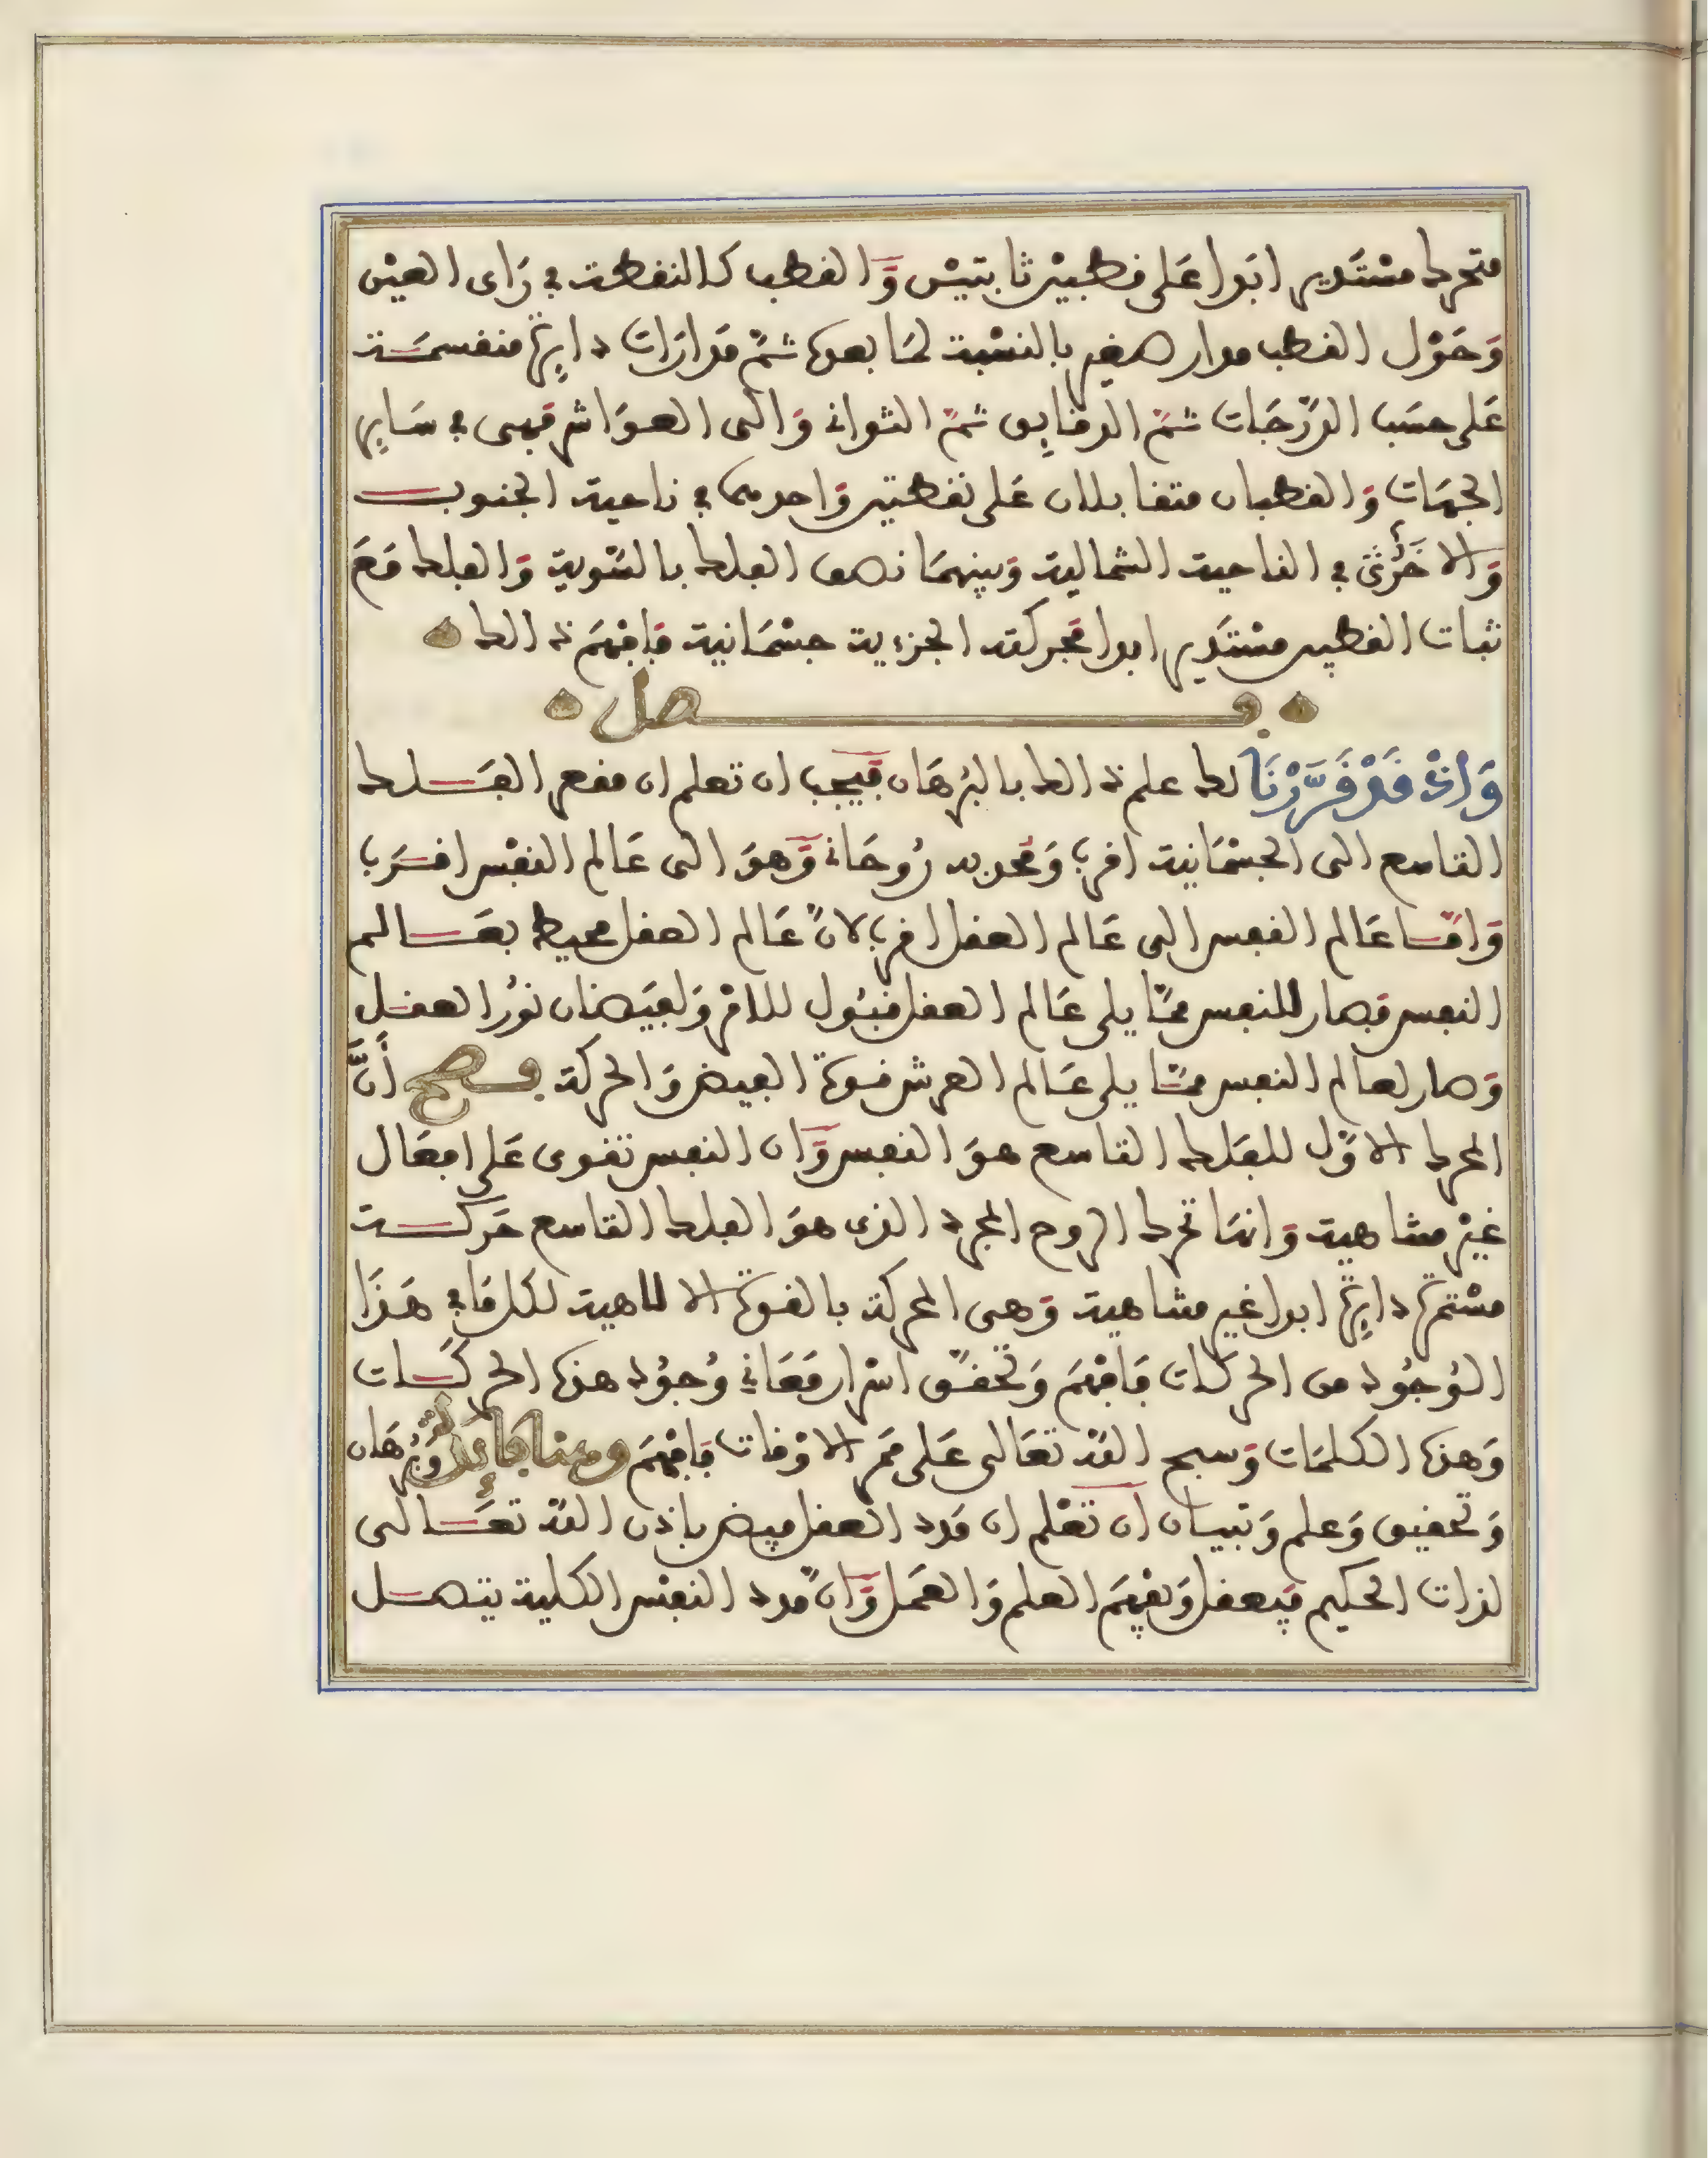 متحرك مستدير ابدا على قطبين ثابتين والقطب كالنقطة في راى العين
وحول القطب مدار صغير بالنسبة لما بعده ثم مدارات دايرة منقسمة
على حسب الدرجات ثم الدقايق ثم الثواني والى العواشر فهي في ساير
الجهات والقطبان متقابلان على نقطتين واحدهما في ناحية الجنوب
والاخرى في الناحية الشمالية وبينهما نصف الفلك بالتسوية والفلك مع
ثبات القطبين مستدير ابدا فحركته الجزءية جسمانية فافهم ذالك
فصل
واذ قد قررنا لك علم ذالك بالبرهان فيجب ان تعلم ان مقعر الفلك
التاسع الى الجسمانية اقرب ومحدبه روحاني وهو الى عالم النفس اقرب
واما عالم النفس الى عالم العقل اقرب لان عالم العقل محيط بعالم
النفس فصار للنفس مما يلي عالم العقل قبول للامر ولفيضان نور العقل
وصار لعالم النفس مما يلي عالم العرش قوة الفيض والحركة فصح أن
المحرك الاول للفلك التاسع هو النفس وان النفس تقوى على افعال
غير متناهية وانما تحرك الروح المجرد الذي هو الفلك التاسع حركة
مستمرة دايرة ابدا غير متناهية وهي المحركة بالقوة الالاهية لكل ما في هذا
الوجود من الحركات فافهم وتحقق اسرار معاني وجود هذه الحركات
وهذه الكلمات وسبح الله تعالى على ممر الاوقات فافهم وهنا فائدة وبرهان
وتحقيق وعلم وتبيان ان تعلم ان مدد العقل فيض باذن الله تعالى
لذات الحكيم فيعقل ويفهم العلم والعمل وان مدد النفس الكلية يتصل